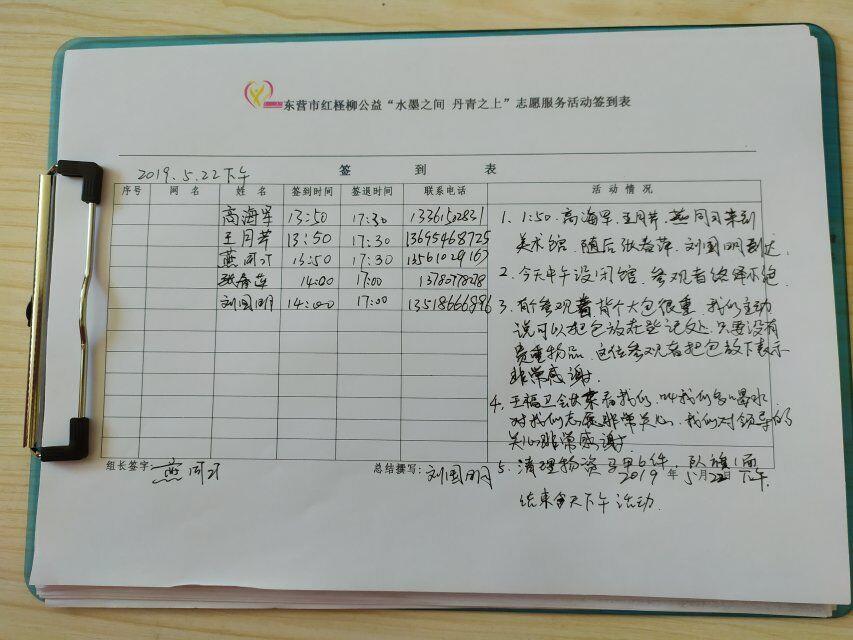 东营市红柽柳公益“水墨之间 丹青之上”志愿服务活动签到表
2019.5.22下午 签 到 表
序号 网 名 姓 名 签到时间 签退时间 联系电话 活 动 情 况
高海军 13:50 17:30 13361502831
王月芹 13:50 17:30 13695468725
燕同 13:50 17:30 13561029167
张春萍 14:00 17:00
刘国明 14:00 17:00 13518666896
1. 1:50. 高海军. 王月芹. 燕同 来到
美术馆. 随后张春萍. 刘国明到达.
2. 今天中午没闭馆. 参观者络绎不绝.
3. 有个参观者背个大包很重. 我们主动
说可以把包放在登记处. 只要没有
贵重物品. 这位参观者把包放下表示
非常感谢.
4. 王福卫 来看我们. 叫我们多喝水.
对我们志愿非常关心. 我们对领导的
关心非常感谢.
5. 清理物资 马甲6件. 队旗1面
结束今天下午活动.
组长签字: 燕同 总结撰写: 刘国明 2019 年 5 月 22 日 下午